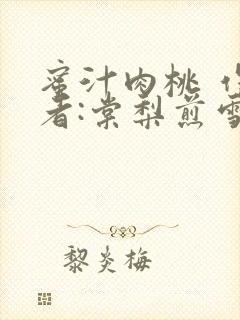 蜜汁肉桃 作
者:棠梨煎雪
黎炎梅